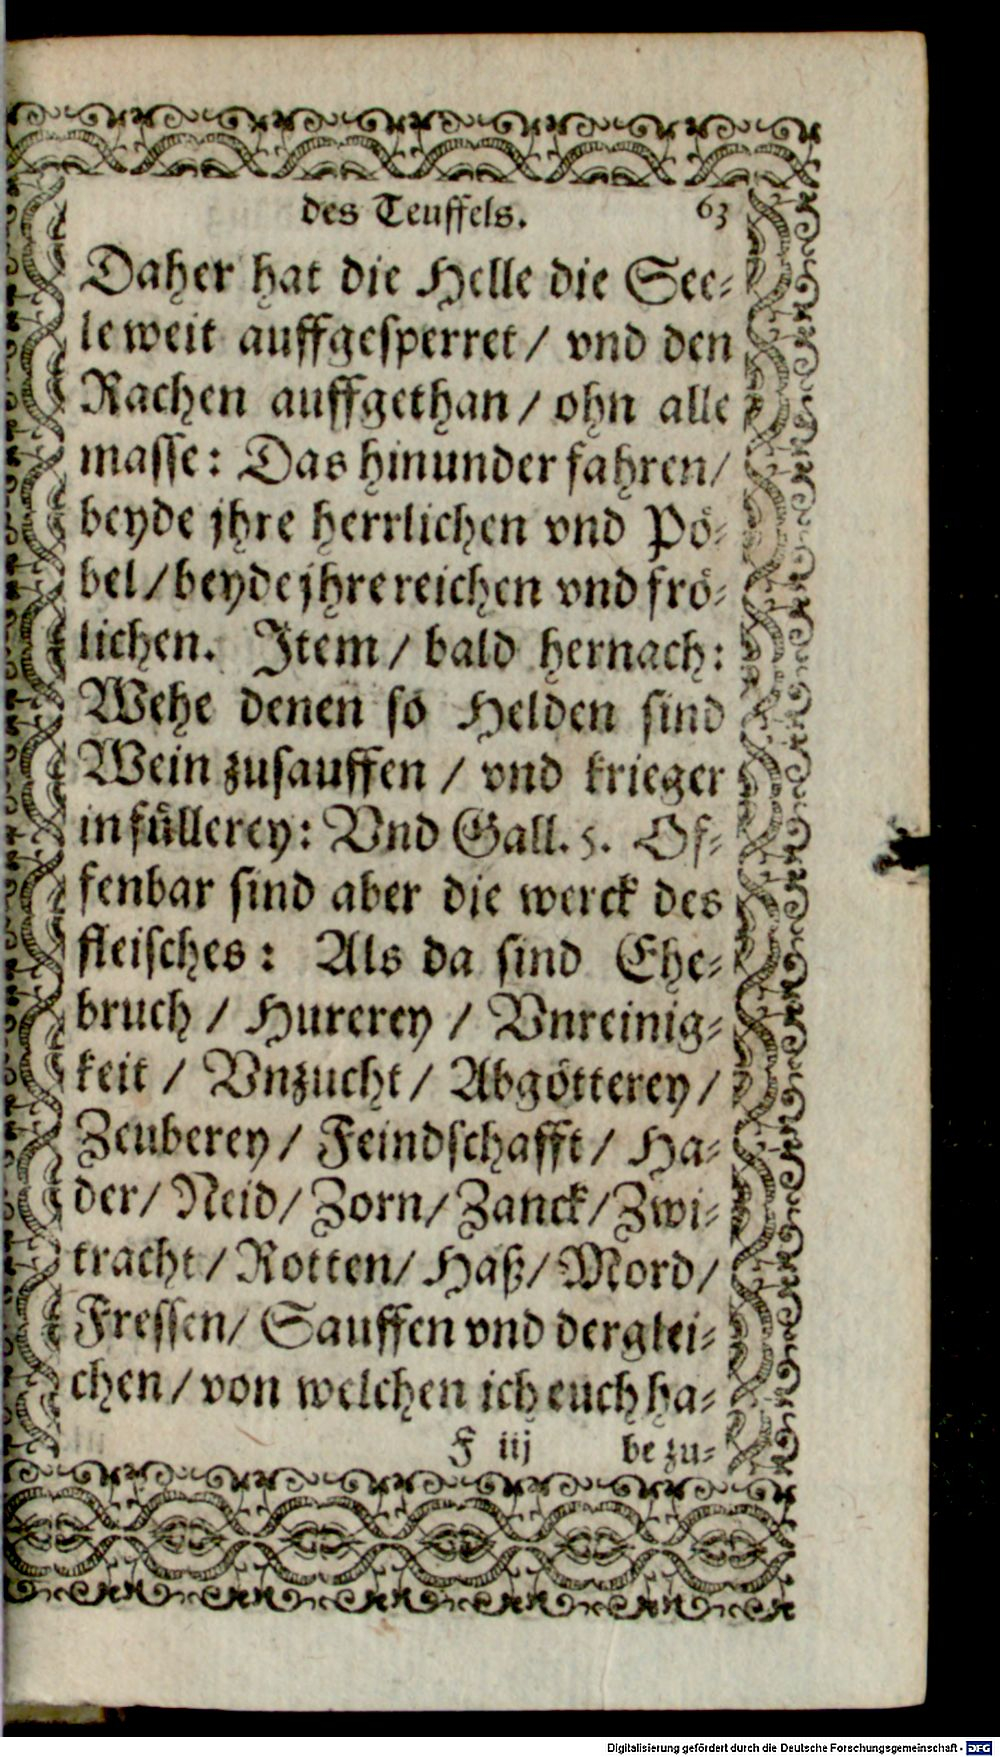 des Teuffels. 63
Daher hat die Helle die See-
le weit auffgesperret / vnd den
Rachen auffgethan / ohn alle
masse: Das hinunder fahren/
beyde jhre herrlichen vnd Pö-
bel / beyde jhre reichen vnd frö-
lichen. Item / bald hernach:
Wehe denen so Helden sind
Wein zusauffen / vnd krieger
in füllerey: Vnd Gall. 5. Of-
fenbar sind aber die werck des
fleisches: Als da sind Ehe-
bruch / Hurerey / Vnreinig-
keit / Vnzucht / Abgötterey /
Zeuberey / Feindschafft / Ha-
der / Neid / Zorn / Zanck / Zwi-
tracht / Rotten / Haß / Mord /
Fressen / Sauffen vnd derglei-
chen / von welchen ich euch ha-
F iij be zu-
Digitalisierung gefördert durch die Deutsche Forschungsgemeinschaft - DFG